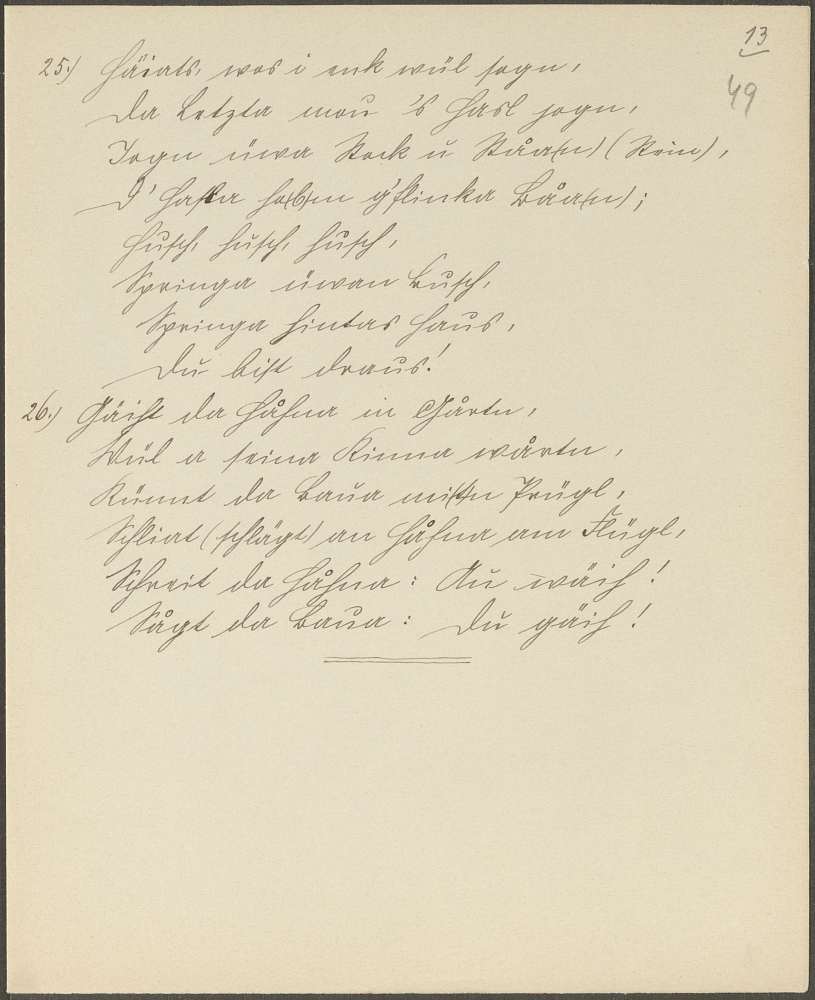 13
49
25.) Häiats, wos i enk wül sogn,
Da Letzta mou 's Hasl jogn,
Jogn üwa Stock u Ståa(n) (Stein),
D' Hasla ho(b)m g'flinka Båa(n);
Husch, husch, husch,
Springa üwan Busch,
Springa hintas Haus,
Du bist draus!
26.) Gäiht da Håhna in Gårtn,
Wül a seina Kinna wårtn,
Künnt da Baua mi(t)n Prügl,
Schliat (schlägt) an Håhna am Flügl,
Schreit da Håhna: Au wäih!
Sågt da Baua: Du gäih!